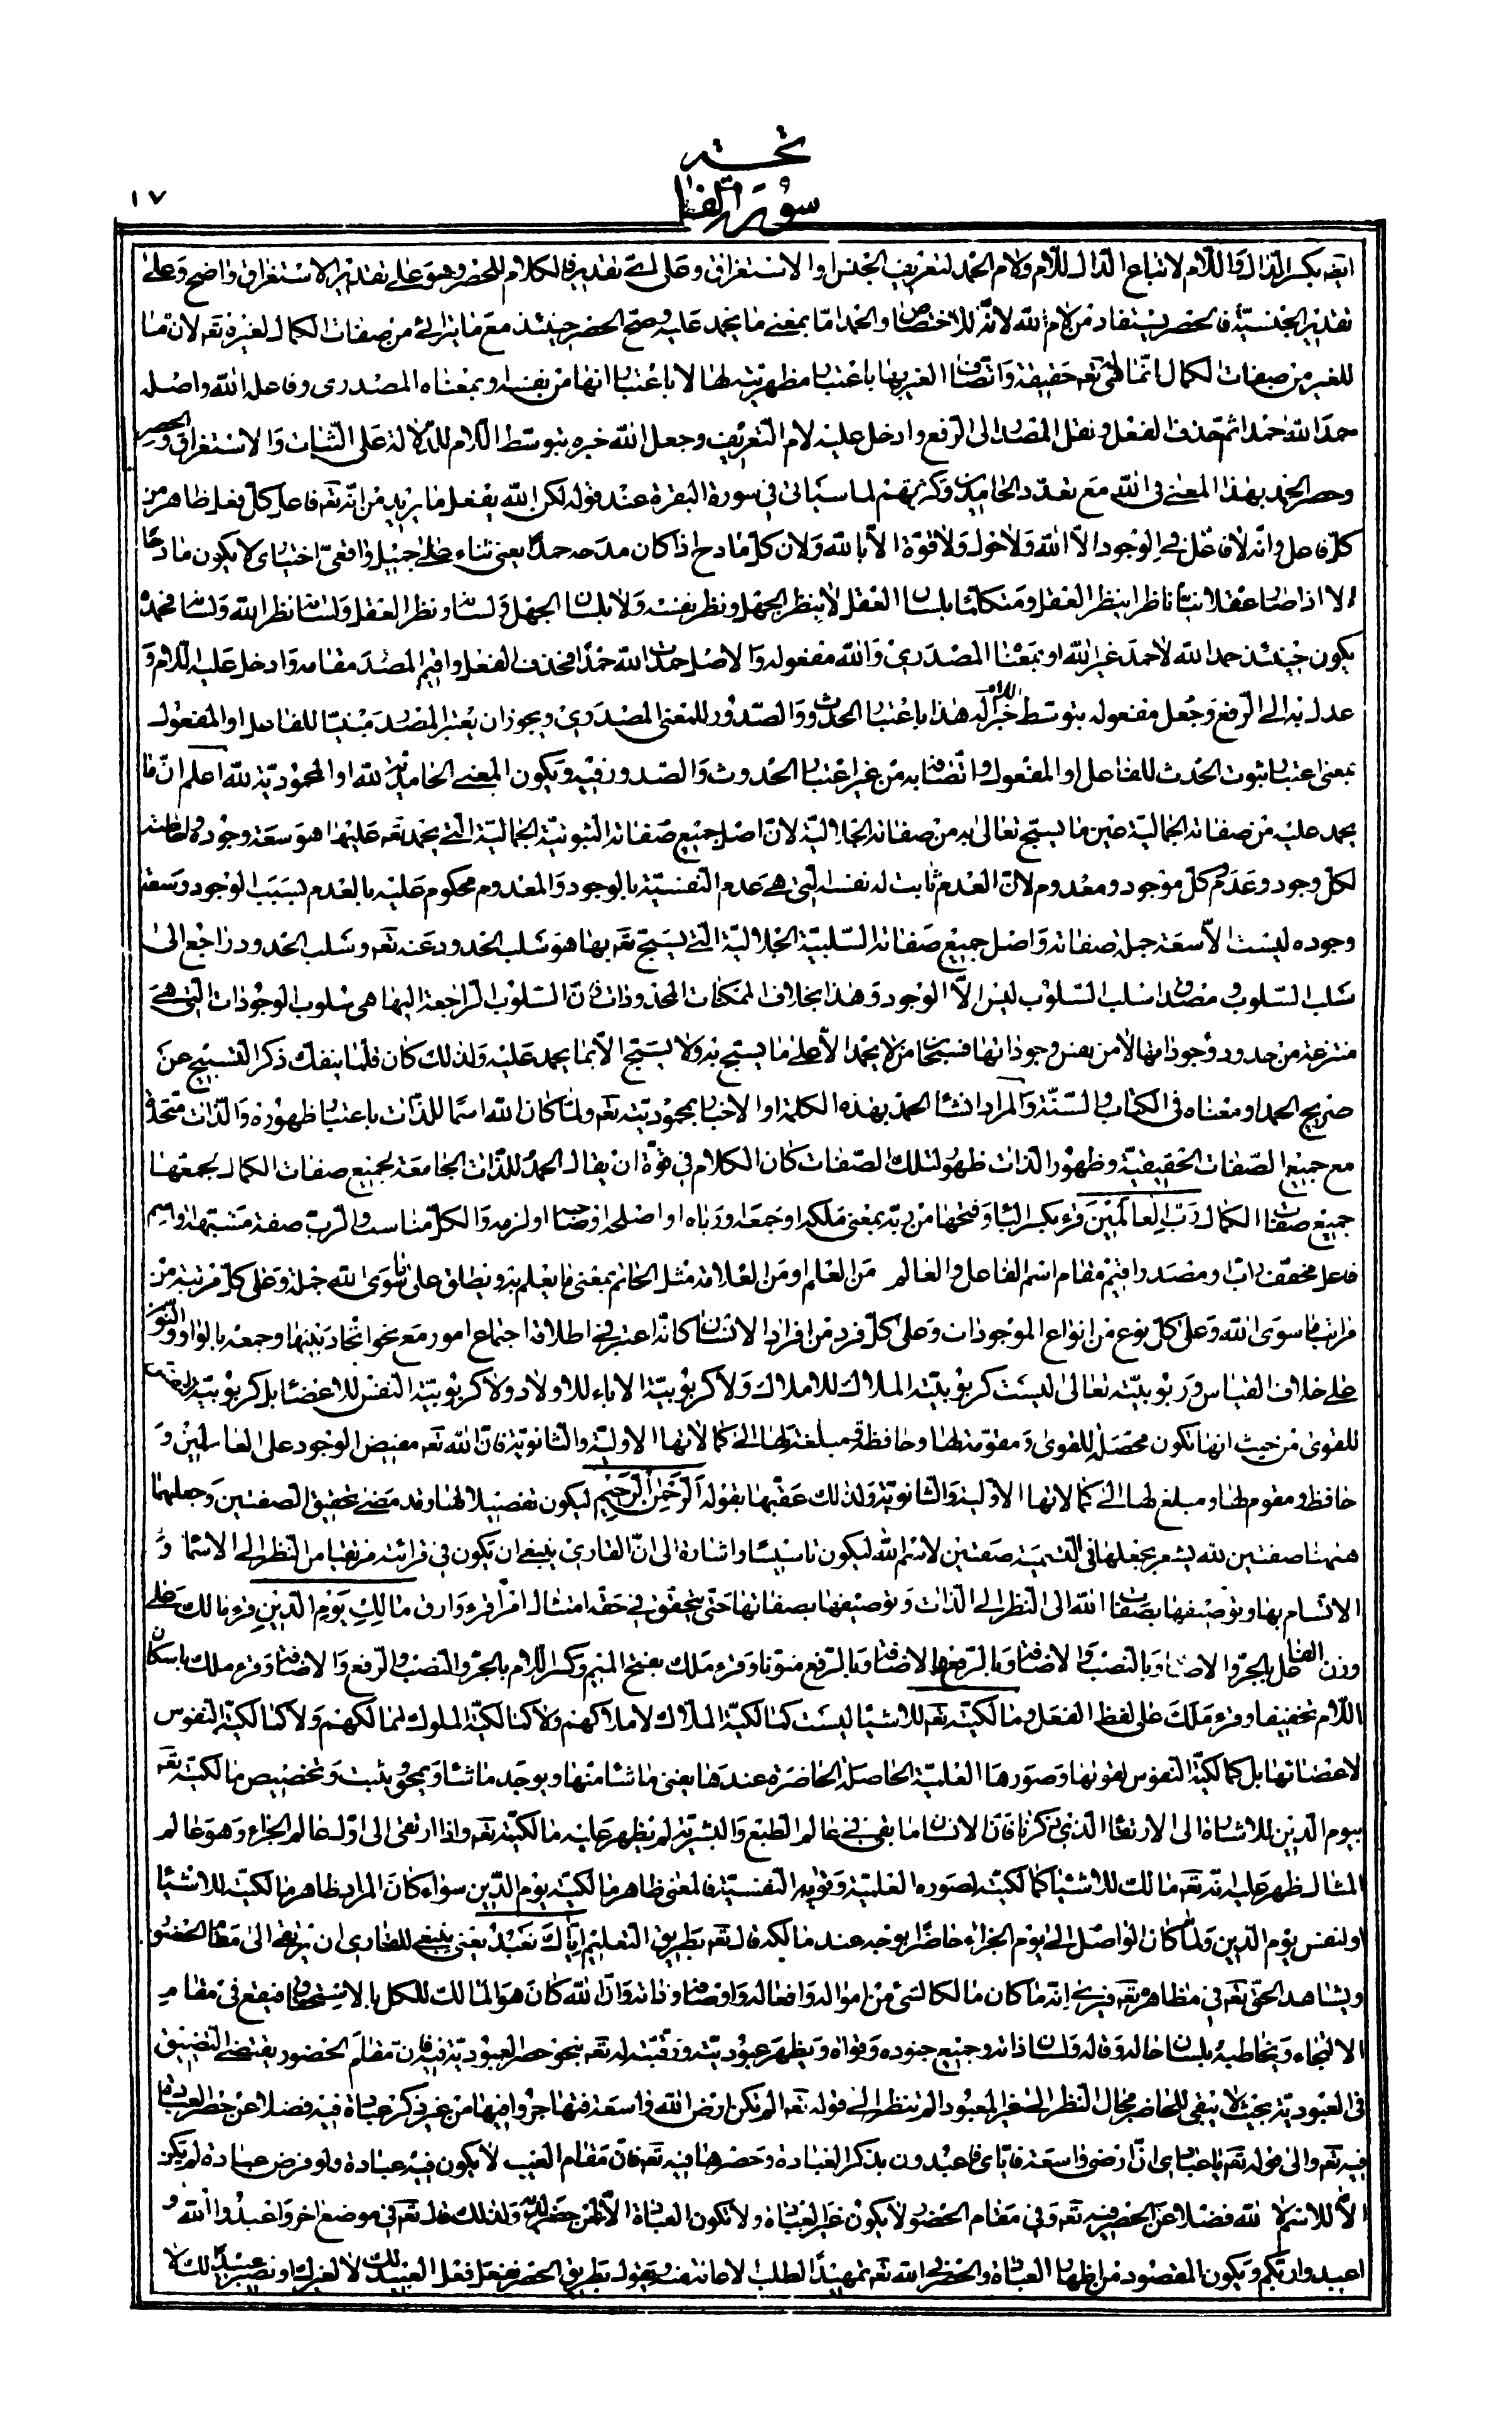 تحته
سورة الفا
١٧
ايضه بكسر الدال واللام لاتباع الدال للام ولام الحمد لتعريف الجنس او الاستغراق وعلى اى تقدير فالكلام للحصر وهو على تقدير الاستغراق واضح وعلى
تقدير الجنسية فالحصر يستفاد من لام لله لانه للاختصاص والحمد اما بمعنى ما يحمد عليه وصح الحصر حينئذ مع ما يترائى من صفات الكمال لغيره تعه لان ما
للغير من صفات الكمال انما هى له تعه حقيقة واتصاف الغير بها باعتبار مظهريته لها لا باعتبار انها من نفسه وبمعناه المصدرى وفاعله الله واصله
حمد الله حمدا ثم حذف الفعل ونقل المصدر الى الرفع وادخل عليه لام التعريف وجعل الله خبره بتوسط اللام للدلالة على الثبات والاستغراق والحصر
وحصر الحمد بهذا المعنى فى الله مع تعدد الحامدين وكثرتهم لما سيأتى فى سورة البقرة عند قوله لكن الله يفعل ما يريد من انه تعه فاعل كل فعل ظاهر من
كل فاعل وانه لا فاعل فى الوجود الا الله ولا حول ولا قوة الا بالله ولان كل مادح اذا كان مدحه حمدا يعنى ثناء على جميل واقعى اختيارى لا يكون مادحا
الا اذا صار عقلانيا ناظرا بنظر العقل ومتكلما بلسان العقل لا بنظر الجهل ونظر نفسه ولا بلسان الجهل ولسانه ونظر العقل ولسانه نظر الله ولسانه فحمده
يكون حينئذ حمد الله لا حمد غير الله او بمعناه المصدرى والله مفعوله والاصل حمدت الله حمدا فحذف الفعل واقيم المصدر مقامه وادخل عليه اللام و
عدل به الى الرفع وجعل مفعوله بتوسط اللام خبرا له هذا باعتبار الحدوث والصدور للمعنى المصدرى ويجوز ان يعتبر المصدر مبنيا للفاعل او المفعول
بمعنى اعتبار ثبوت الحدث للفاعل او المفعول واتصافه به من غير اعتبار الحدوث والصدور فيه ويكون المعنى الحامدية لله او المحمودية لله اعلم ان ما
يحمد عليه من صفاته الجمالية عين ما يسبح تعالى به من صفاته الجلالية لان اصل جميع صفاته الثبوتية الجمالية التى يحمد تعه عليها هو سعة وجوده واحاطته
لكل وجود وعدم وكل موجود ومعدوم لان العدم ثابت له نفسه التى هى عدم النفسية بالوجود والمعدوم محكوم عليه بالعدم بسبب الوجود وسعة
وجوده ليست الا سعة جملة صفاته واصل جميع صفاته السلبية الجلالية التى يسبح تعه بها هو سلب الحدود عنه تعه وسلب الحدود راجع الى
سلب السلوب ومصداق سلب السلوب ليس الا الوجود وهذا بخلاف الممكنات المحدودات فان السلوب الراجعة اليها هى سلوب الوجودات التى هى
منتزعة من حدود وجوداتها لا من نفس وجوداتها فسبحان من لا يحمد الا على ما يسبح به ولا يسبح الا بما يحمد عليه ولذلك كان قلما ينفك ذكر التسبيح عن
صريح الحمد او معناه فى الكتاب والسنة والمراد انشاء الحمد بهذه الكلمة او الاخبار بمحموديته تعه ولما كان الله اسما للذات باعتبار ظهوره والذات متحدة
مع جميع الصفات الحقيقية وظهور الذات ظهور لتلك الصفات كان الكلام فى قوة ان يقال الحمد للذات الجامعة لجميع صفات الكمال لجمعها
جميع صفات الكمال رب العالمين قرء بكسر الباء وفتحها من ربه بمعنى ملكه او جمعه ورباه او اصلحه او صاحبه او لزمه والكل مناسب والرب صفة مشبهة او اسم
فاعل مخفف راب او مصدر اقيم مقام اسم الفاعل والعالم من العلم او من العلامة مثل الخاتم بمعنى ما يعلم به ويطلق على ما سوى الله جملة وعلى كل مرتبة من
مراتب ما سوى الله وعلى كل نوع من انواع الموجودات وعلى كل فرد من افراد الانسان كانه اعتبر فى اطلاقه اجتماع امور مع نحو اتحاد بينها وجمعه بالواو والنون
على خلاف القياس وربوبيته تعالى ليست كربوبية الملاك للاملاك ولا كربوبية الاباء للاولاد ولا كربوبية النفس للاعضاء بل كربوبية النفس
للقوى من حيث انها تكون محصلة للقوى ومقومة لها وحافظة ومبلغة لها الى كمالاتها الاولية والثانوية فان الله تعه مفيض الوجود على العالمين و
حافظ ومقوم لها ومبلغ لها الى كمالاتها الاولية والثانوية ولذلك عقبها بقوله الرحمن الرحيم ليكون تفصيلا لها وقد مضى تحقيق الصفتين وجعلهما
هيهنا صفتين لله يشعر بجعلها فى التسمية صفتين لاسم الله ليكون تاسيسا واشارة الى ان القارى ينبغى ان يكون فى قرائته مرتقيا من النظر الى الاسماء و
الاتسام بها وتوصيفها بصفات الله الى النظر الى الذات وتوصيفها بصفاتها حتى يتحقق فى حقه امتثال امر اقرء وارق مالك يوم الدين قرء مالك على
وزن الفاعل بالجر والاضافة وبالنصب والاضافة وبالرفع والاضافة وبالرفع منونا وقرء ملك بفتح الميم وكسر اللام بالجر والنصب والرفع والاضافة وقرء ملك باسكان
اللام تخفيفا وقرء ملك على لفظ الفعل ومالكيته تعه للاشياء ليست كمالكية الملاك لاملاكهم ولا كمالكية الملوك لممالكهم ولا كمالكية النفوس
لاعضائها بل كمالكية النفوس لقواها وصورها العلمية الحاصلة الحاضرة عندها يفنى ما شاء منها ويوجد ما شاء ويمحو ويثبت وتخصيص مالكيته تعه
بيوم الدين للاشارة الى الارتقاء الذى ذكرنا فان الانسان ما بقى فى عالم الطبع والبشرية لم يظهر عليه مالكيته تعه واذا ارتقى الى اول عالم الجزاء وهو عالم
المثال ظهر عليه انه تعه مالك للاشياء كمالكيته لصوره العلمية وقواه النفسية فالمعنى ظاهر مالكيته يوم الدين سواء كان المراد ظاهر مالكيته للاشياء
او لنفس يوم الدين ولما كان الواصل الى يوم الجزاء حاضرا بوجه عند مالكه قال تعه بطريق التعليم اياك نعبد يعنى ينبغى للقارى ان يرتقى الى مقام الحضور
ويشاهد الحق تعه فى مظاهره تعه فيرى انه ما كان مالكا لشئ من امواله وافعاله واوصافه وذاته وان الله كان هو المالك للكل بالاستحقاق فيقع فى مقام
الالتجاء ويخاطبه بلسان حاله وقاله ولسان ذاته وجميع جنوده وقواه ويظهر عبوديته ورقيته له تعه بنحو حصر العبودية فيه فان مقام الحضور يقتضى التضييق
فى العبودية بحيث لا يبقى للحاضر مجال النظر الى غير المعبود الم تنظر الى قوله تعه الم تكن ارض الله واسعة فتهاجروا فيها من غير ذكر عبادة فيه فضلا عن حصر العبادة
فيه تعه والى قوله تعه يا عبادى ان ارضى واسعة فاياى فاعبدون بذكر العبادة وحصرها فيه تعه فان مقام الغيب لا يكون فيه عبادة ولو فرض عبادة لم يكن
الا للاسم لا لله فضلا عن الحصر فيه تعه وفى مقام الحضور لا يكون غير العبادة ولا تكون العبادة الا لمن حضر لديه ولذلك قال تعه فى موضع اخر واعبدوا الله و
اعبدوا ربكم ويكون المقصود من اظهار العبادة والحصر فى الله تعه تمهيدا لطلب الاعانة منه ويقول بطريق الحصر نفعل فعل العبيد لك لا لغيرك او نصير عبيدا لك لا